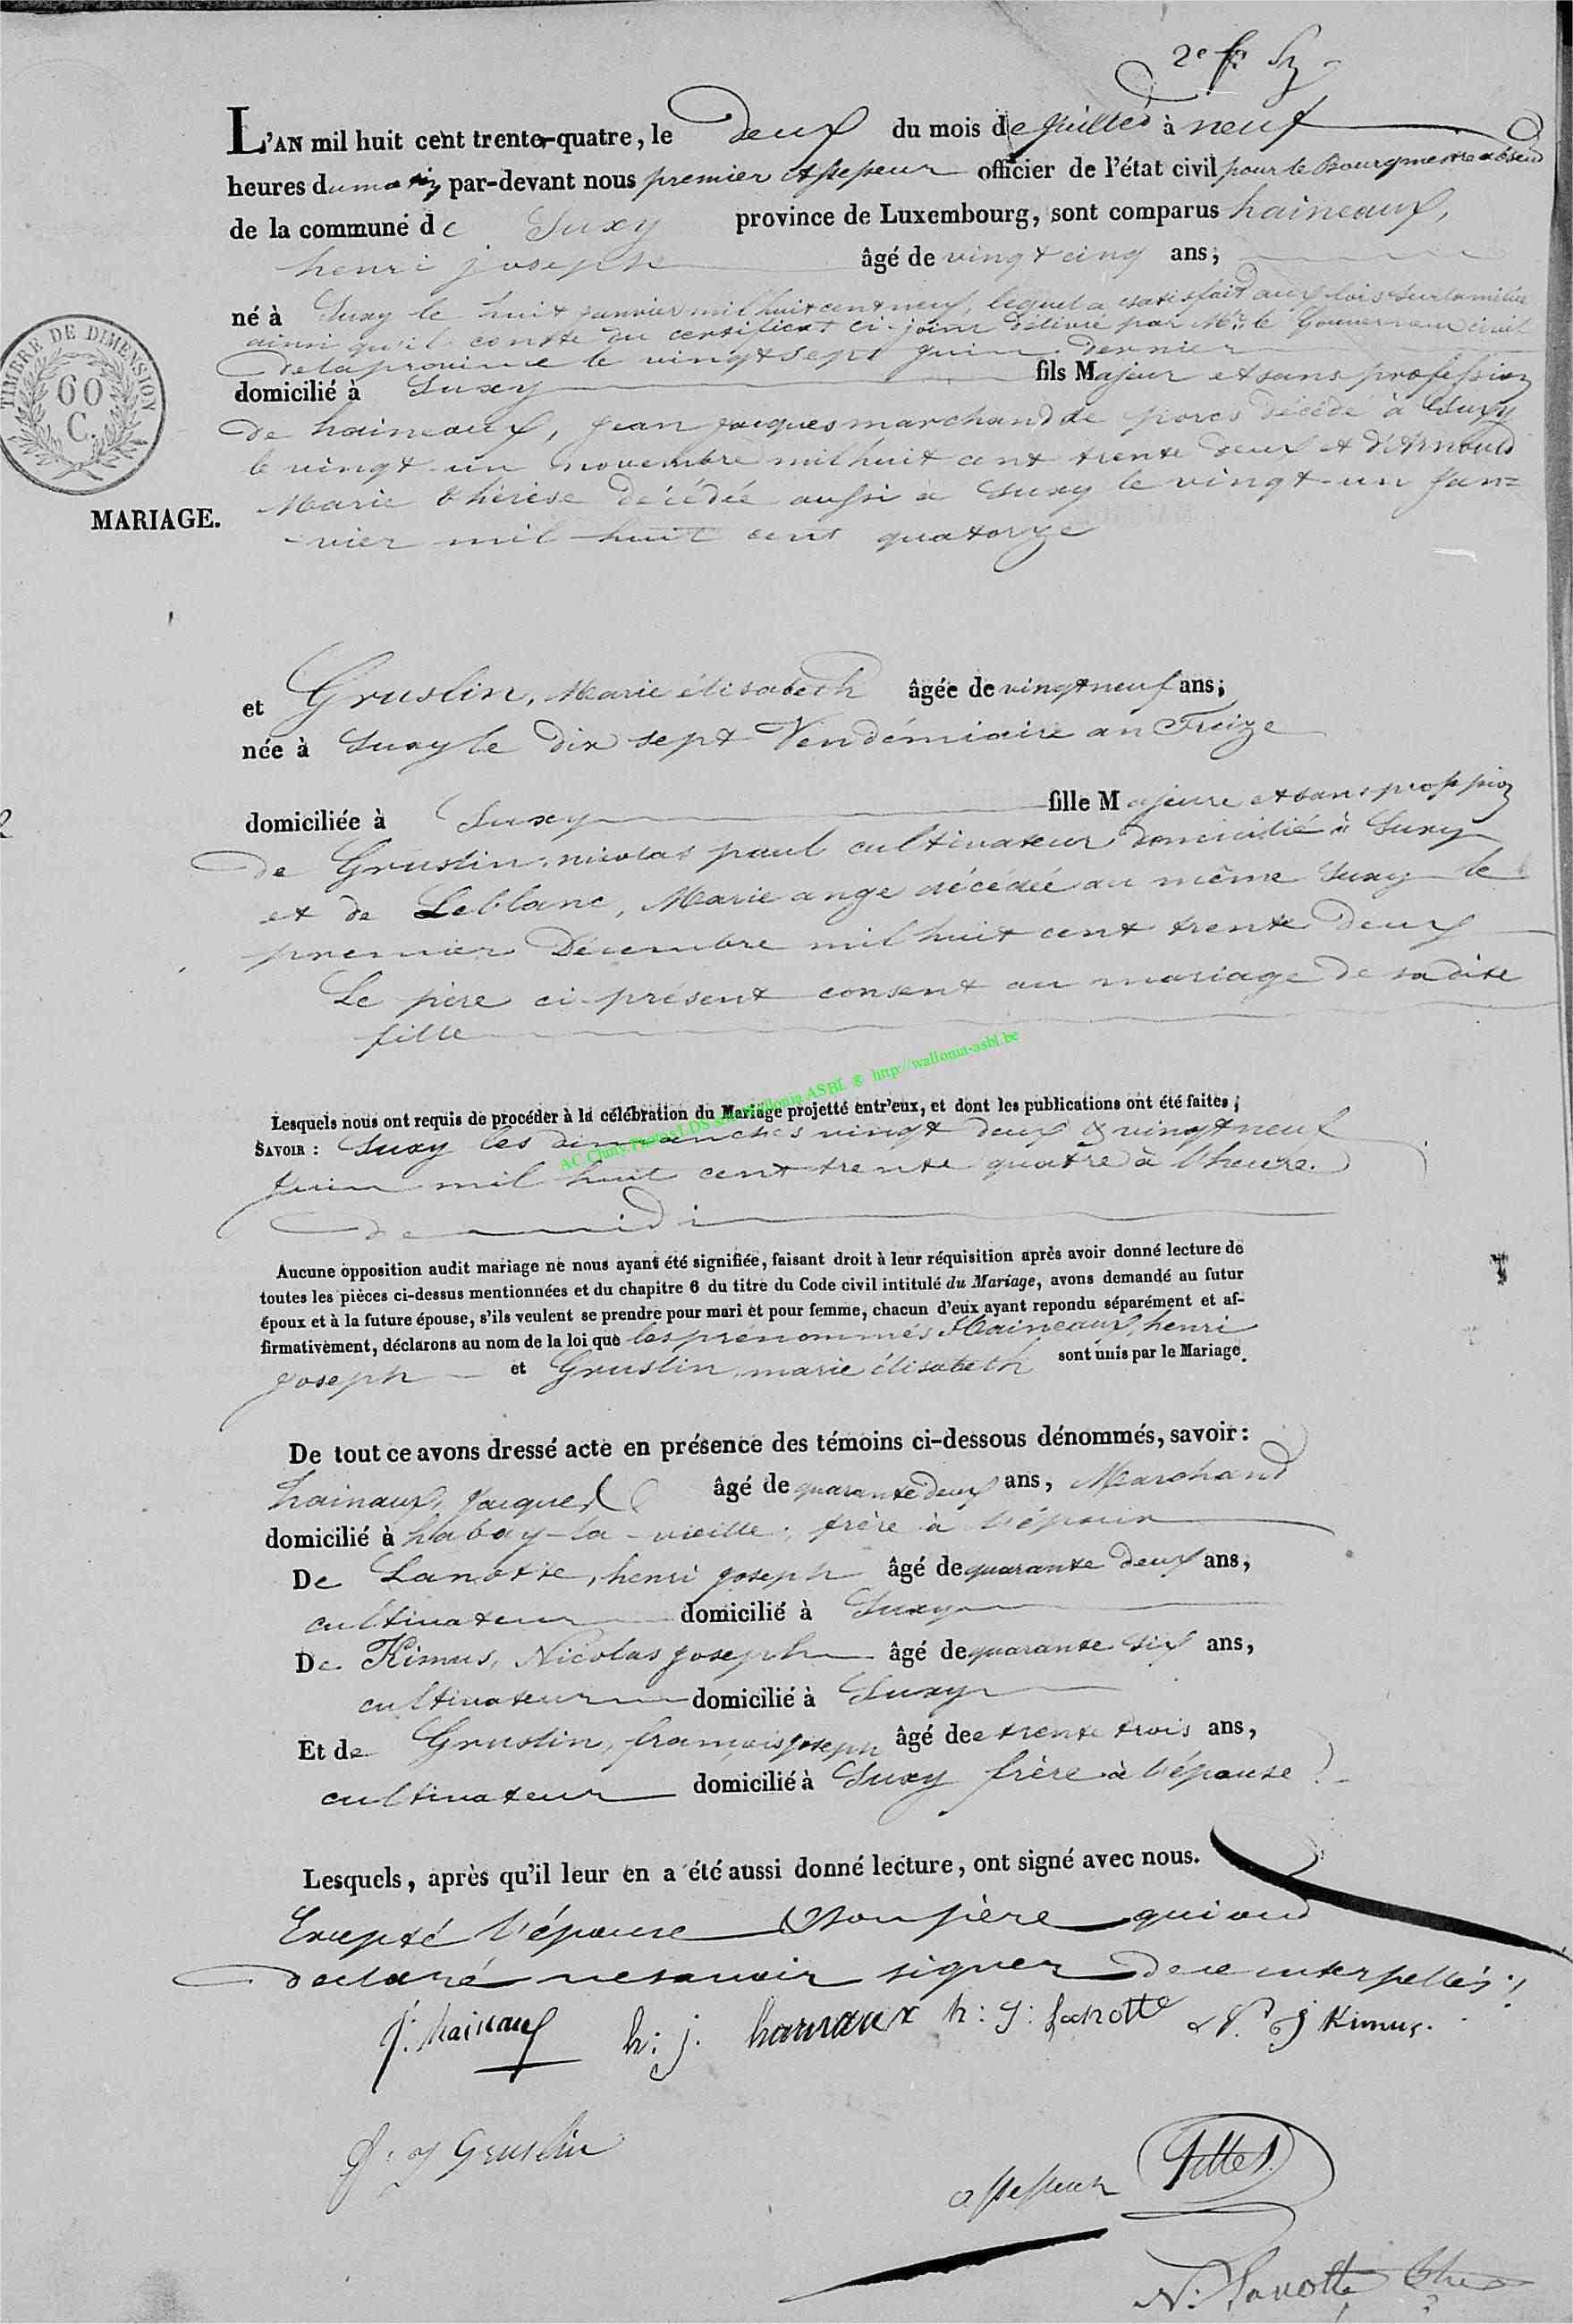 2e
L'AN mil huit cent trente-quatre, le deux du mois de Juillet à neuf
heures du matin par-devant nous premier assesseur officier de l'état civil pour le Bourgmestre absent
de la commune de Suxy province de Luxembourg, sont comparus haineaux,
henri joseph âgé de vingt cinq ans;
né à Suxy le huit Janvier mil huit cent neuf, lequel a satisfait aux lois sur la milice
ainsi qu'il conste du certificat ci-joint délivré par Mr. le Gouverneur civil
de la province le vingt sept Juin dernier
domicilié à Suxy fils Majeur et sans profession
de haineaux, Jean Jacques marchand de porcs décédé à Suxy
le vingt-un novembre mil huit cent trente deux et d'Arnould
Marie thérèse décédée aussi à Suxy le vingt-un Jan=
-vier mil huit cent quatorze
TIMBRE DE DIMENSION
60
C.
MARIAGE.
et Gruslin, Marie élisabeth âgée de vingt neuf ans;
née à Suxy le dix sept Vendémiaire an Treize
domiciliée à Suxy fille Majeure et sans profession
de Gruslin, nicolas paul cultivateur domicilié à Suxy
et de Leblanc, Marie ange décédée au même Suxy le
premier Décembre mil huit cent trente deux
Le père ci-présent consent au mariage de sa dite
fille
AC Chiny Photos LDS Wallonia ASBL @ http://wallonia-asbl.be
Lesquels nous ont requis de procéder à la célébration du Mariage projetté entr'eux, et dont les publications ont été faites;
SAVOIR : Suxy les dimanches vingt deux & vingt neuf
Juin mil huit cent trente quatre à l'heure
de midi
Aucune opposition audit mariage ne nous ayant été signifiée, faisant droit à leur réquisition après avoir donné lecture de
toutes les pièces ci-dessus mentionnées et du chapitre 6 du titre du Code civil intitulé du Mariage, avons demandé au futur
époux et à la future épouse, s'ils veulent se prendre pour mari et pour femme, chacun d'eux ayant repondu séparément et af-
firmativement, déclarons au nom de la loi que les prénommés Haineaux, henri
Joseph et Gruslin, marie élisabeth sont unis par le Mariage.
De tout ce avons dressé acte en présence des témoins ci-dessous dénommés, savoir:
hainaux, Jacques âgé de quarante deux ans, Marchand
domicilié à habay-la-vieille, frère à l'époux
De Lanotte, henri joseph âgé de quarante deux ans,
cultivateur domicilié à Suxy
De Kimus, Nicolas joseph âgé de quarante six ans,
cultivateur domicilié à Suxy
Et de Gruslin, françois joseph âgé de trente trois ans,
cultivateur domicilié à Suxy frère à l'épouse
Lesquels, après qu'il leur en a été aussi donné lecture, ont signé avec nous.
Excepté l'épouse & son père qui ont
declaré ne savoir signer de ce interpellés
J: hainaux h: j. hainaux h: J: Lanotte N. J Kimus.
f: J Gruslin
assesseur Gilles
N: Lanotte